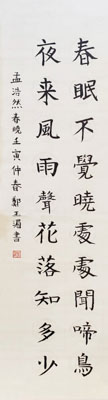 春眠不覺曉處處聞啼鳥
夜来風雨聲花落知多少
孟浩然春曉壬寅仲春鄭玉書